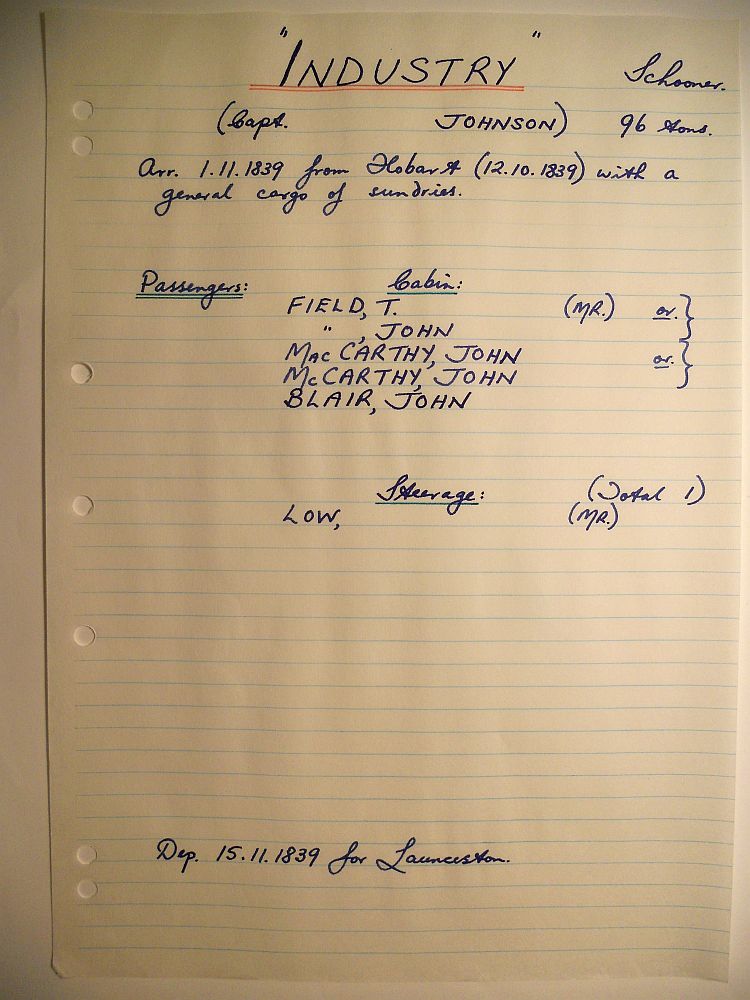 "INDUSTRY" Schooner.
(Capt. JOHNSON) 96 tons.
Arr. 1.11.1839 from Hobart (12.10.1839) with a
general cargo of sundries.
Passengers: Cabin:
FIELD, T. (MR.) or.}
" , JOHN
MacCARTHY, JOHN or.}
McCARTHY, JOHN
BLAIR, JOHN
Steerage: (Total 1)
LOW, (MR.)
Dep. 15.11.1839 for Launceston.